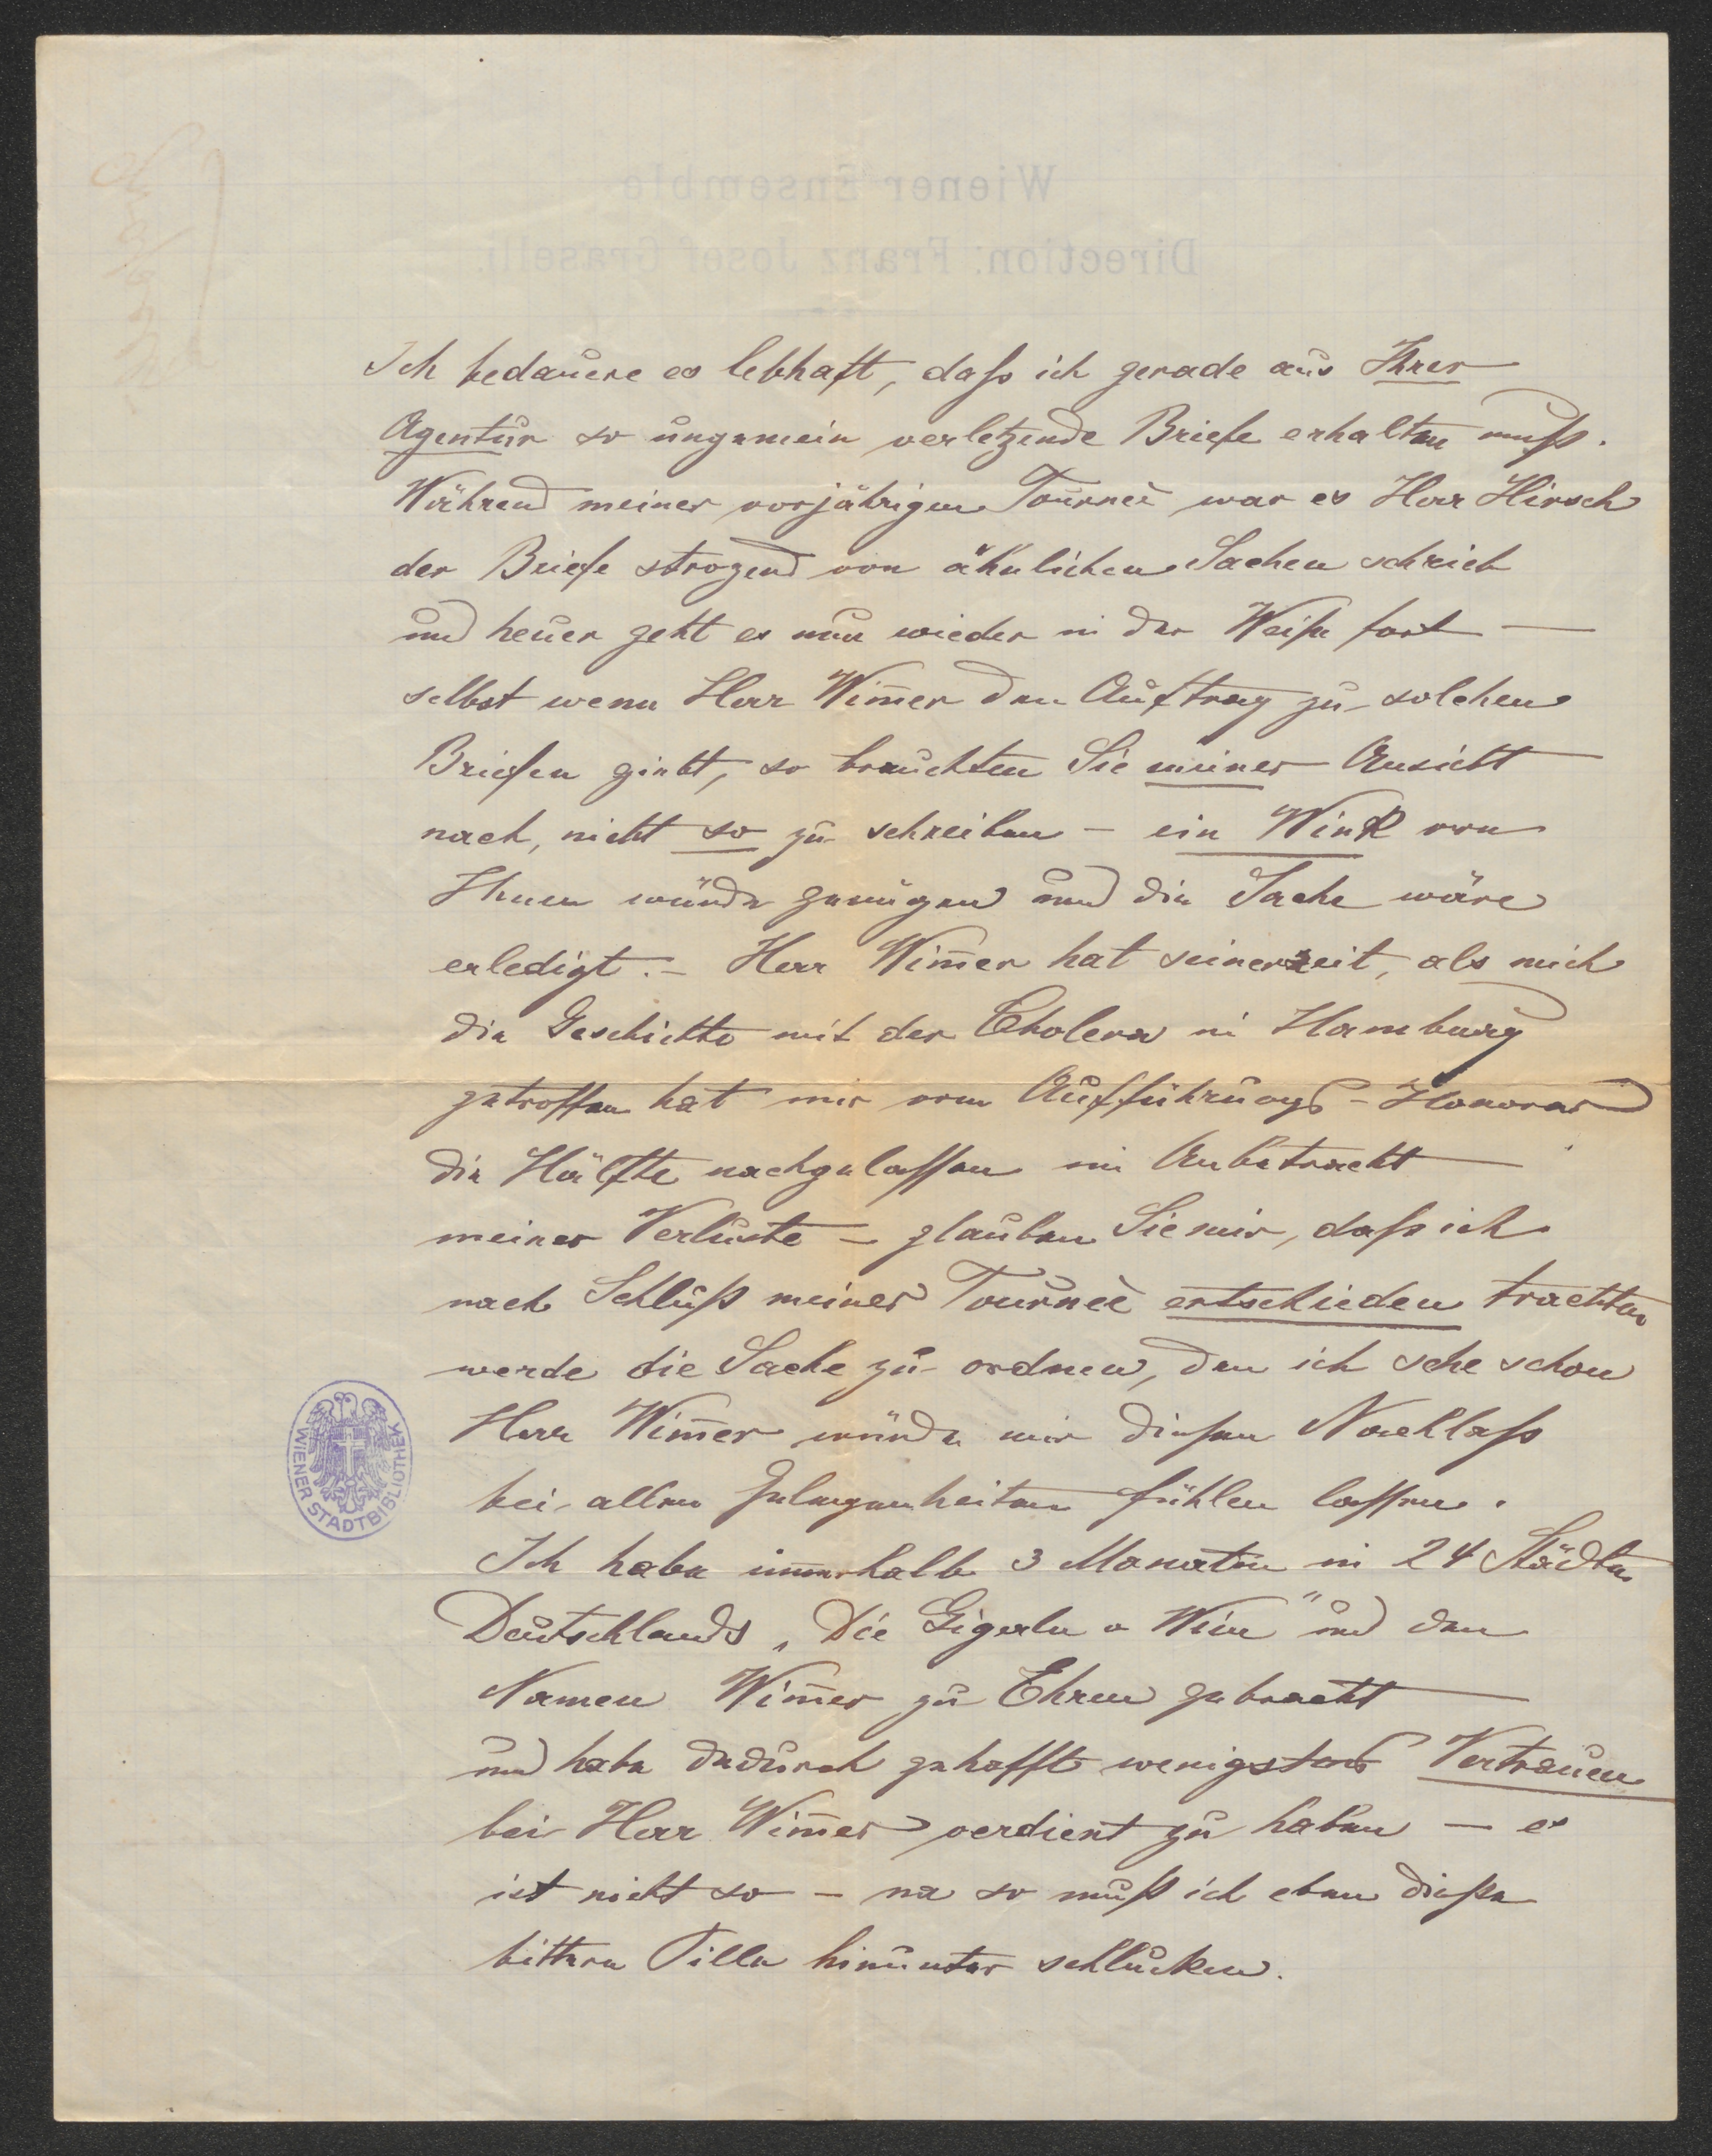 Wiener Ensemble
Direction: Franz Josef Graselli.
Ich bedauere es lebhaft, daß ich gerade aus Ihrer
Agentur so ungemein verletzende Briefe erhalten muß.
Während meiner vorjährigen Tourneè war es Herr Hirsch
der Briefe strozend von ähnlichen Sachen schrieb
und heuer geht es nun wieder in der Weiße fort —
selbst wenn Herr Wim̅er den Auftrag zu solchen
Briefen giebt, so brauchten Sie meiner Ansicht
nach, nicht so zu schreiben – ein Wink von
Ihnen würde genügen und die Sache wäre
erledigt. – Herr Wim̅er hat seinerzeit, als mich
die Geschichte mit der Cholera in Hamburg
getroffen hat mir vom Aufführungs-Honorar
die Hälfte nachgelassen in Anbetracht
meiner Verluste – glauben Sie mir, daß ich
nach Schluß meiner Tourneè entschieden trachten
werde die Sache zu ordnen, den ich sehe schon
Herr Wim̅er würde mir dießen Nachlaß
bei allen Gelegenheiten fühlen lassen.
Ich habe innerhalb 3 Monaten in 24 Städten
Deutschlands „Die Gigerln v Wien" und den
Namen Wim̅er zu Ehren gebracht —
und habe dadurch gehofft wenigstens Vertrauen
bei Herr Wim̅er verdient zu haben – es
ist nicht so – na so muß ich eben dieße
bittere Pille hinunter schlucken.
WIENER STADTBIBLIOTHEK